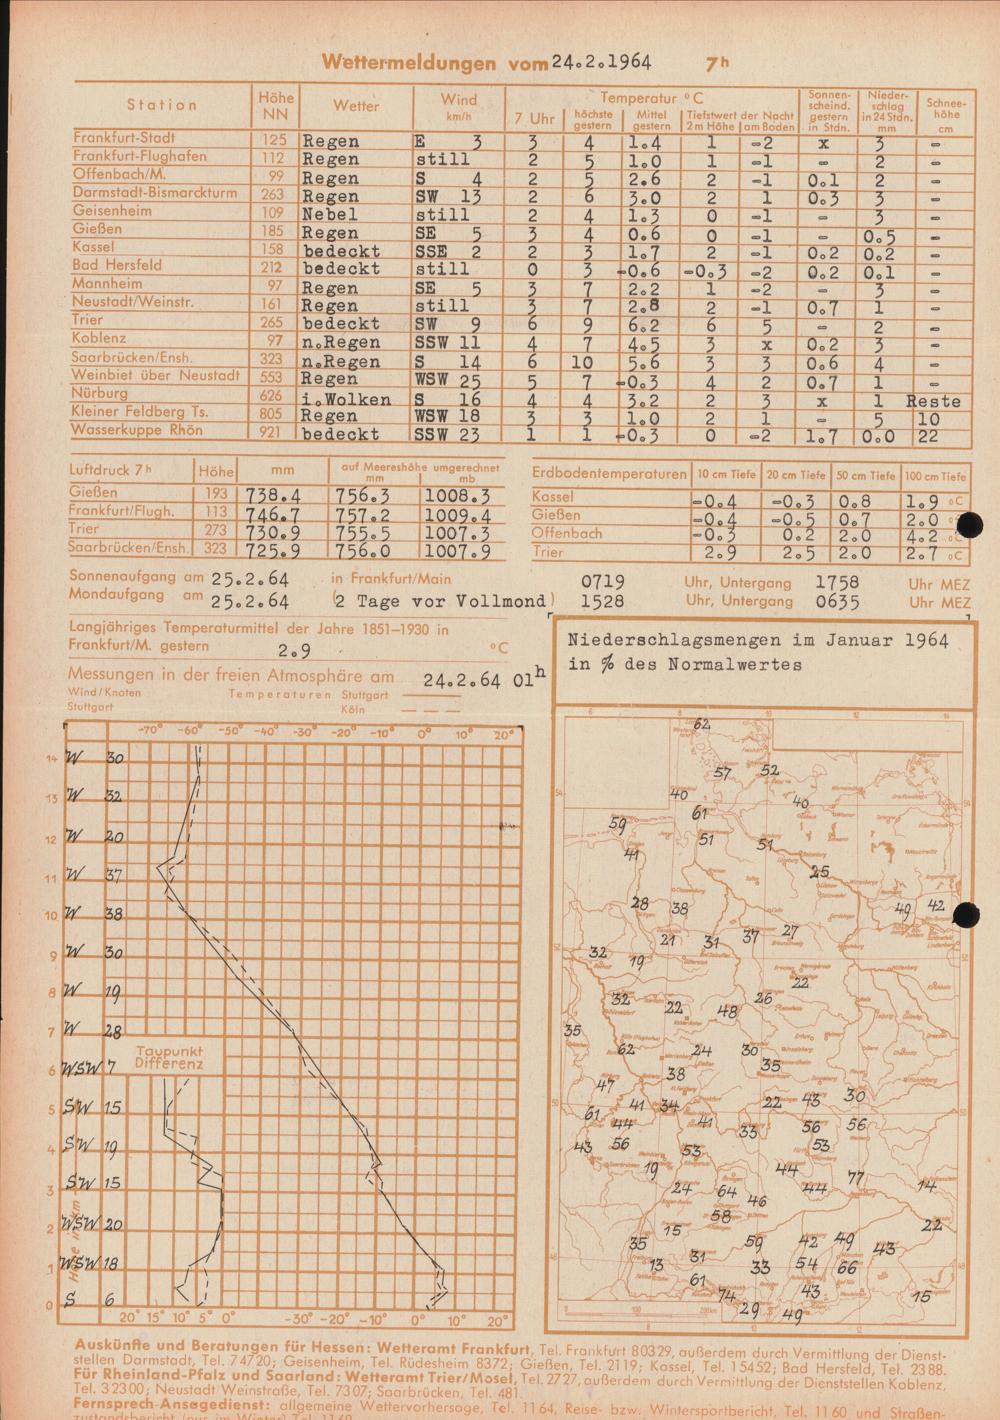 Wettermeldungen vom 24.2.1964 7h
Station Höhe NN Wetter Wind km/h Temperatur °C 7 Uhr höchste gestern Mittel gestern Tiefstwert der Nacht 2 m Höhe am Boden Sonnenscheind. gestern in Stdn. Niederschlag in 24 Stdn. mm Schneehöhe cm
Frankfurt-Stadt 125 Regen E 3 3 4 1.4 1 -2 x 3 -
Frankfurt-Flughafen 112 Regen still 2 5 1.0 1 -1 - 2 -
Offenbach/M. 99 Regen S 4 2 5 2.6 2 -1 0.1 2 -
Darmstadt-Bismarckturm 263 Regen SW 13 2 6 3.0 2 1 0.3 3 -
Geisenheim 109 Nebel still 2 4 1.3 0 -1 - 3 -
Gießen 185 Regen SE 5 3 4 0.6 0 -1 - 0.5 -
Kassel 158 bedeckt SSE 2 2 3 1.7 2 -1 0.2 0.2 -
Bad Hersfeld 212 bedeckt still 0 3 -0.6 -0.3 -2 0.2 0.1 -
Mannheim 97 Regen SE 5 3 7 2.2 1 -2 - 3 -
Neustadt/Weinstr. 161 Regen still 3 7 2.8 2 -1 0.7 1 -
Trier 265 bedeckt SW 9 6 9 6.2 6 5 - 2 -
Koblenz 97 n.Regen SSW 11 4 7 4.5 3 x 0.2 3 -
Saarbrücken/Ensh. 323 n.Regen S 14 6 10 5.6 3 3 0.6 4 -
Weinbiet über Neustadt 553 Regen WSW 25 5 7 -0.3 4 2 0.7 1 -
Nürburg 626 i.Wolken S 16 4 4 3.2 2 3 x 1 Reste
Kleiner Feldberg Ts. 805 Regen WSW 18 3 3 1.0 2 1 - 5 10
Wasserkuppe Rhön 921 bedeckt SSW 23 1 1 -0.3 0 -2 1.7 0.0 22
Luftdruck 7h Höhe mm auf Meereshöhe umgerechnet mm mb
Gießen 193 738.4 756.3 1008.3
Frankfurt/Flugh. 113 746.7 757.2 1009.4
Trier 273 730.9 755.5 1007.3
Saarbrücken/Ensh. 323 725.9 756.0 1007.9
Erdbodentemperaturen 10 cm Tiefe 20 cm Tiefe 50 cm Tiefe 100 cm Tiefe
Kassel -0.4 -0.3 0.8 1.9 °C
Gießen -0.4 -0.5 0.7 2.0
Offenbach -0.3 0.2 2.0 4.2 °C
Trier 2.9 2.5 2.0 2.7 °C
Sonnenaufgang am 25.2.64 in Frankfurt/Main 0719 Uhr, Untergang 1758 Uhr MEZ
Mondaufgang am 25.2.64 (2 Tage vor Vollmond) 1528 Uhr, Untergang 0635 Uhr MEZ
Langjähriges Temperaturmittel der Jahre 1851–1930 in
Frankfurt/M. gestern 2.9 °C
Messungen in der freien Atmosphäre am 24.2.64 01h
Wind/Knoten Temperaturen Stuttgart
Stuttgart Köln
-70° -60° -50° -40° -30° -20° -10° 0° 10° 20°
14 W 30
13 W 32
12 W 20
11 W 37
10 W 38
9 W 30
8 W 19
7 W 28
Taupunkt
Differenz
6 WSW 7
5 SW 15
4 SW 19
3 SW 15
2 WSW 20
1 WSW 18
0 S 6
Höhe in km
20° 15° 10° 5° 0° -30° -20° -10° 0° 10° 20°
Niederschlagsmengen im Januar 1964
in % des Normalwertes
62
57 52
40 40
59 61
41 51 51
25
28 38 49 42
21 31 37 27
32 19
22
32 22 48 26
35
62 24 30
38 35
47
61 41 34 22 43 30
44 41 33 56 56
43 56 53 53
19 44 77
24 64 46 44 14
58
15 22
35 59 42 49 43
13 31 33 54 66
61 74 43 15
29 49
Auskünfte und Beratungen für Hessen: Wetteramt Frankfurt, Tel. Frankfurt 80329, außerdem durch Vermittlung der Dienst-
stellen Darmstadt, Tel. 74720; Geisenheim, Tel. Rüdesheim 8372; Gießen, Tel. 2119; Kassel, Tel. 15452; Bad Hersfeld, Tel. 2388.
Für Rheinland-Pfalz und Saarland: Wetteramt Trier/Mosel, Tel. 2727, außerdem durch Vermittlung der Dienststellen Koblenz,
Tel. 32300; Neustadt Weinstraße, Tel. 7307; Saarbrücken, Tel. 481.
Fernsprech-Ansagedienst: allgemeine Wettervorhersage, Tel. 1164, Reise- bzw. Wintersportbericht, Tel. 1160 und Straßen-
zustandsbericht (nur im Winter) Tel. 1169